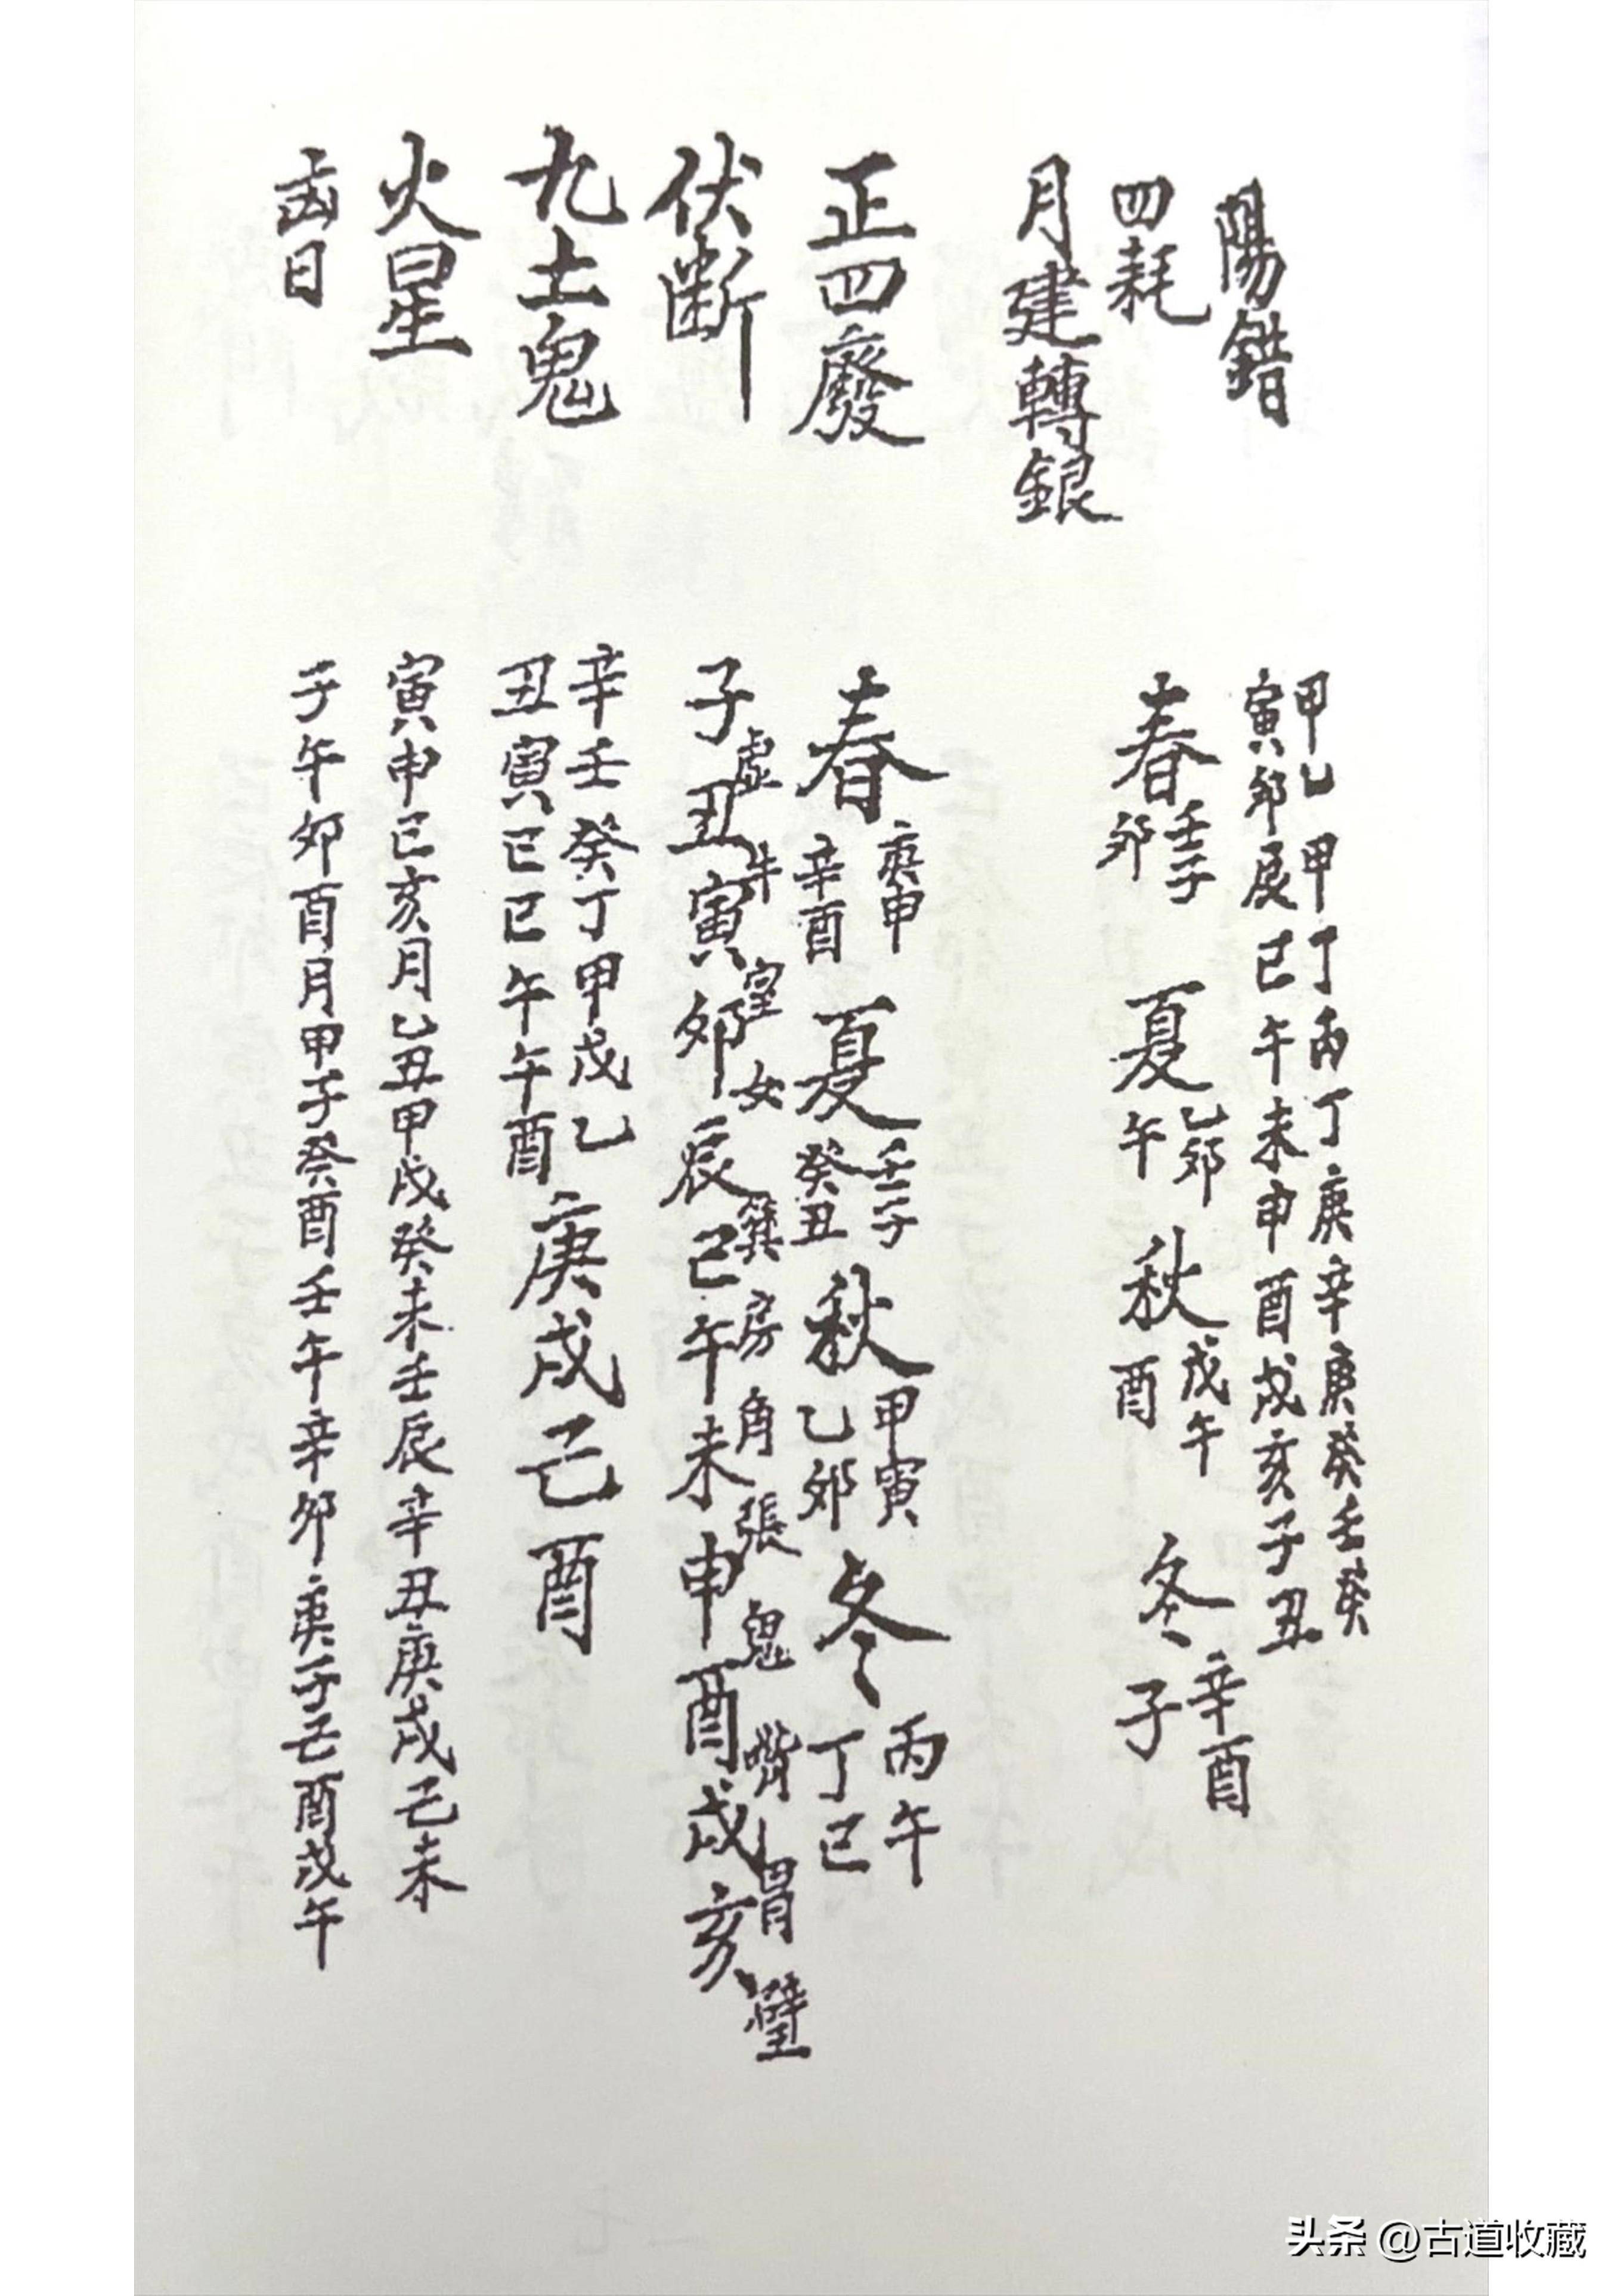 陽錯
甲乙甲丁丙丁庚辛庚癸壬癸
寅卯辰巳午未申酉戌亥子丑
四耗
春壬子 夏乙卯 秋戊午 冬辛酉
月建轉銀
卯 午 酉 子
正四廢
春庚申辛酉夏壬子癸丑秋甲寅乙卯冬丙午丁巳
伏斷
虛牛室女箕房角張鬼嘴胃壁
子丑寅卯辰巳午未申酉戌亥
九土鬼
辛壬癸丁甲戊乙
丑寅巳巳午午酉
庚戌己酉
火星
寅申巳亥月乙丑甲戌癸未壬辰辛丑庚戌己未
日
子午卯酉月甲子癸酉壬午辛卯庚子己酉戊午
头条 @古道收藏